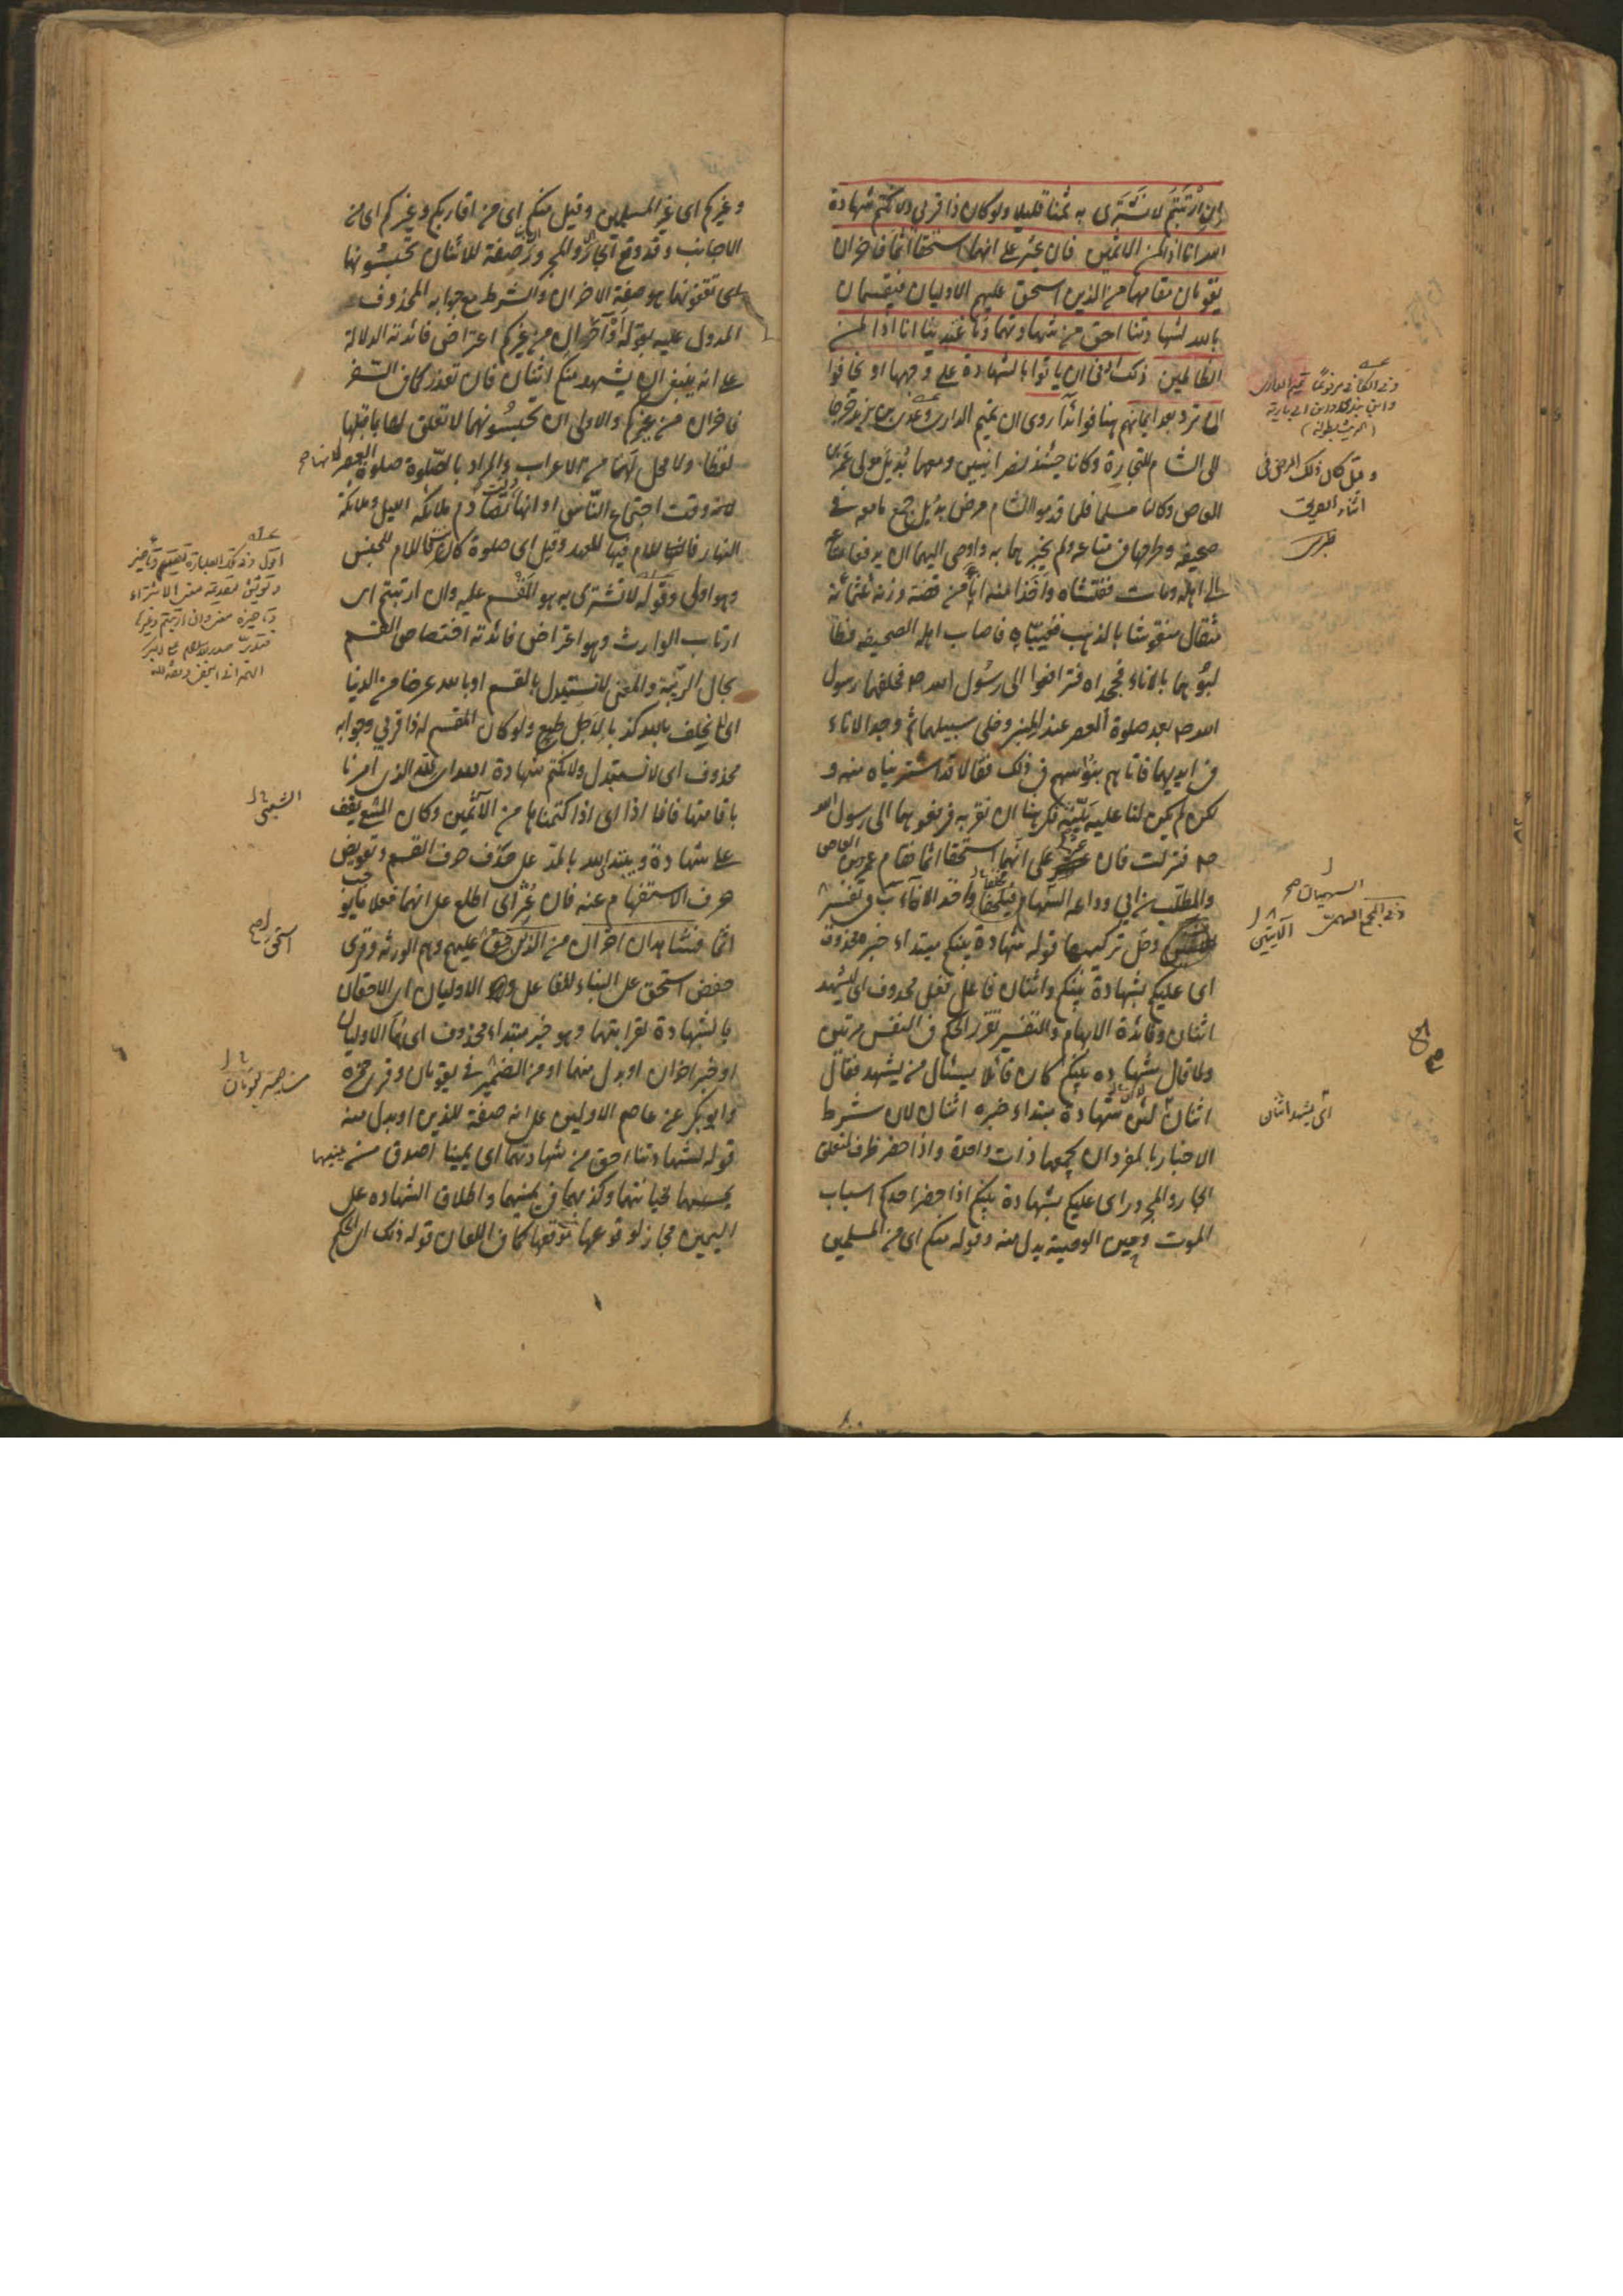 ان ارتبتم لا نشتري به ثمنا قليلا ولو كان ذا قربى ولا نكتم شهادة
الله انا اذا لمن الاثمين فان عثر على انهما استحقا اثما فاخران
يقومان مقامهما من الذين استحق عليهم الاوليان فيقسمان
بالله لشهادتنا احق من شهادتهما وما اعتدينا انا اذا لمن
الظالمين ذلك ادنى ان ياتوا بالشهادة على وجهها او يخافوا
ان ترد بعد ايمانهم هنا فوائد آ روى ان تميم الدارى وعدى بن يزيد خرجا
الى الشام للتجارة وكانا حينئذ نصرانيين ومعهما بديل مولى عمرو بن
العاص وكان مسلما فلما قدموا الشام مرض بديل جمع ما معه فى
صحيفة وطرحها فى متاعه ولم يخبرهما به واوصى اليهما ان يدفعا متاعه
الى اهله ومات ففتشاه واخذا منه اناء من فضة وزنه ثلثمائة
مثقال منقوشا بالذهب فغيباه فاصاب اهله الصحيفة فطا
لبوهما بالاناء فجحداه فترافعوا الى رسول الله ص فحلفهما رسول
الله ص بعد صلوة العصر عند المنبر وخلى سبيلهما ثم وجد الاناء
فى ايديهما فاتاهم بنو سهم فى ذلك فقالا قد اشتريناه منه و
لكن لم يكن لنا عليه بينة فكرهنا ان نقر به فرفعوهما الى رسول الله
ص فنزلت فان عثر على انهما استحقا اثما فقام عمرو بن العاص
والمطلب بن ابي وداعه السهميان فحلفا واخذا الاناء ب فى تفسير
وحل تركيبها قوله شهادة بينكم مبتداء خبره محذوف
اى عليكم شهادة بينكم واثنان فاعل فعل محذوف اى ليشهد
اثنان وفائدة الابهام والتفسير تقرر الحكم فى النفس مرتين
ولما قال شهادة بينكم كان قائلا يسئال من يشهد فقال
اثنان لان شهادة مبتداء خبره اثنان لان شرط
الاخبار بالمفرد ان يجمعها ذات واحدة واذا حضر ظرف لتعلق
الجار والمجرور اى عليكم شهادة بينكم اذا حضر احدكم اسباب
الموت وحين الوصية بدل منه وقوله منكم اى من المسلمين
وقيل كان ذلك المرض فى
اثناء الطريق
اى يشهد اثنان
وغيركم اى غير المسلمين وقيل منكم اى من اقاربكم وغيركم اى من
الاجانب وقد وقع الجار والمجرور صفة للاثنان تحبسونهما
اى تقفونهما هو صفة الاخران والشرط مع جوابه المحذوف
المدول عليه بقوله او آخران من غيركم اعتراض فائدته الدلالة
على انه ينبغى ان يشهد منكم اثنان فان تعذر كما فى السفر
فاخران من غيركم والاولى ان تحبسونهما لا تعلق لها بما قبلها
لفظا ولا محل لها من الاعراب والمراد بالصلوة صلوة العصر لانها
لانه وقت اجتماع الناس او انها وقت تصادم ملائكة الليل وملائكة
النهار فاللام فيها للعهد وقيل اى صلوة كانت فاللام للجنس
وهو اولى وقوله لا نشترى به هو المقسم عليه وان ارتبتم اى
ارتاب الوارث وهو اعتراض فائدته اختصاص القسم
بحال الريبة والمعنى لا نستبدل بالقسم او بالله عرضا من الدنيا
اى لا نحلف بالله كذبا لاجل طمع ولو كان المقسم له ذا قربى وجوابه
محذوف اى لا نستبدل ولا نكتم شهادة الله اى الله الذى امرنا
باقامتها فانا اذا اى اذا كتمناها من الآثمين وكان الشعبى يقف
على شهادة ويبتدى الله بالمد على حذف حرف القسم وتعويض
حرف الاستفهام عنه فان عثر اى اطلع على انهما فعلا ما يوجب
اثما فشاهدان اخران من الذين استحق عليهم وهم الورثه وقرى
حفص استحق على البناء للفاعل وهو الاوليان اى الاحقان
بالشهادة لقرابتهما وهو خبر مبتداء محذوف اى هما الاوليان
او خبر اخران او بدل منهما او من الضمير فى يقومان وقرى حمزة
وابو بكر عن عاصم الاولين على انه صفة للذين او بدل منه
قوله لشهادتنا احق من شهادتهما اى يميننا اصدق من يمينهما
لخيانتهما وكذبهما فى يمينهما واطلاق الشهاده على
اليمين مجاز لوقوعها موقعها كما فى اللعان قوله ذلك اى الحكم
الشعبى
استحق